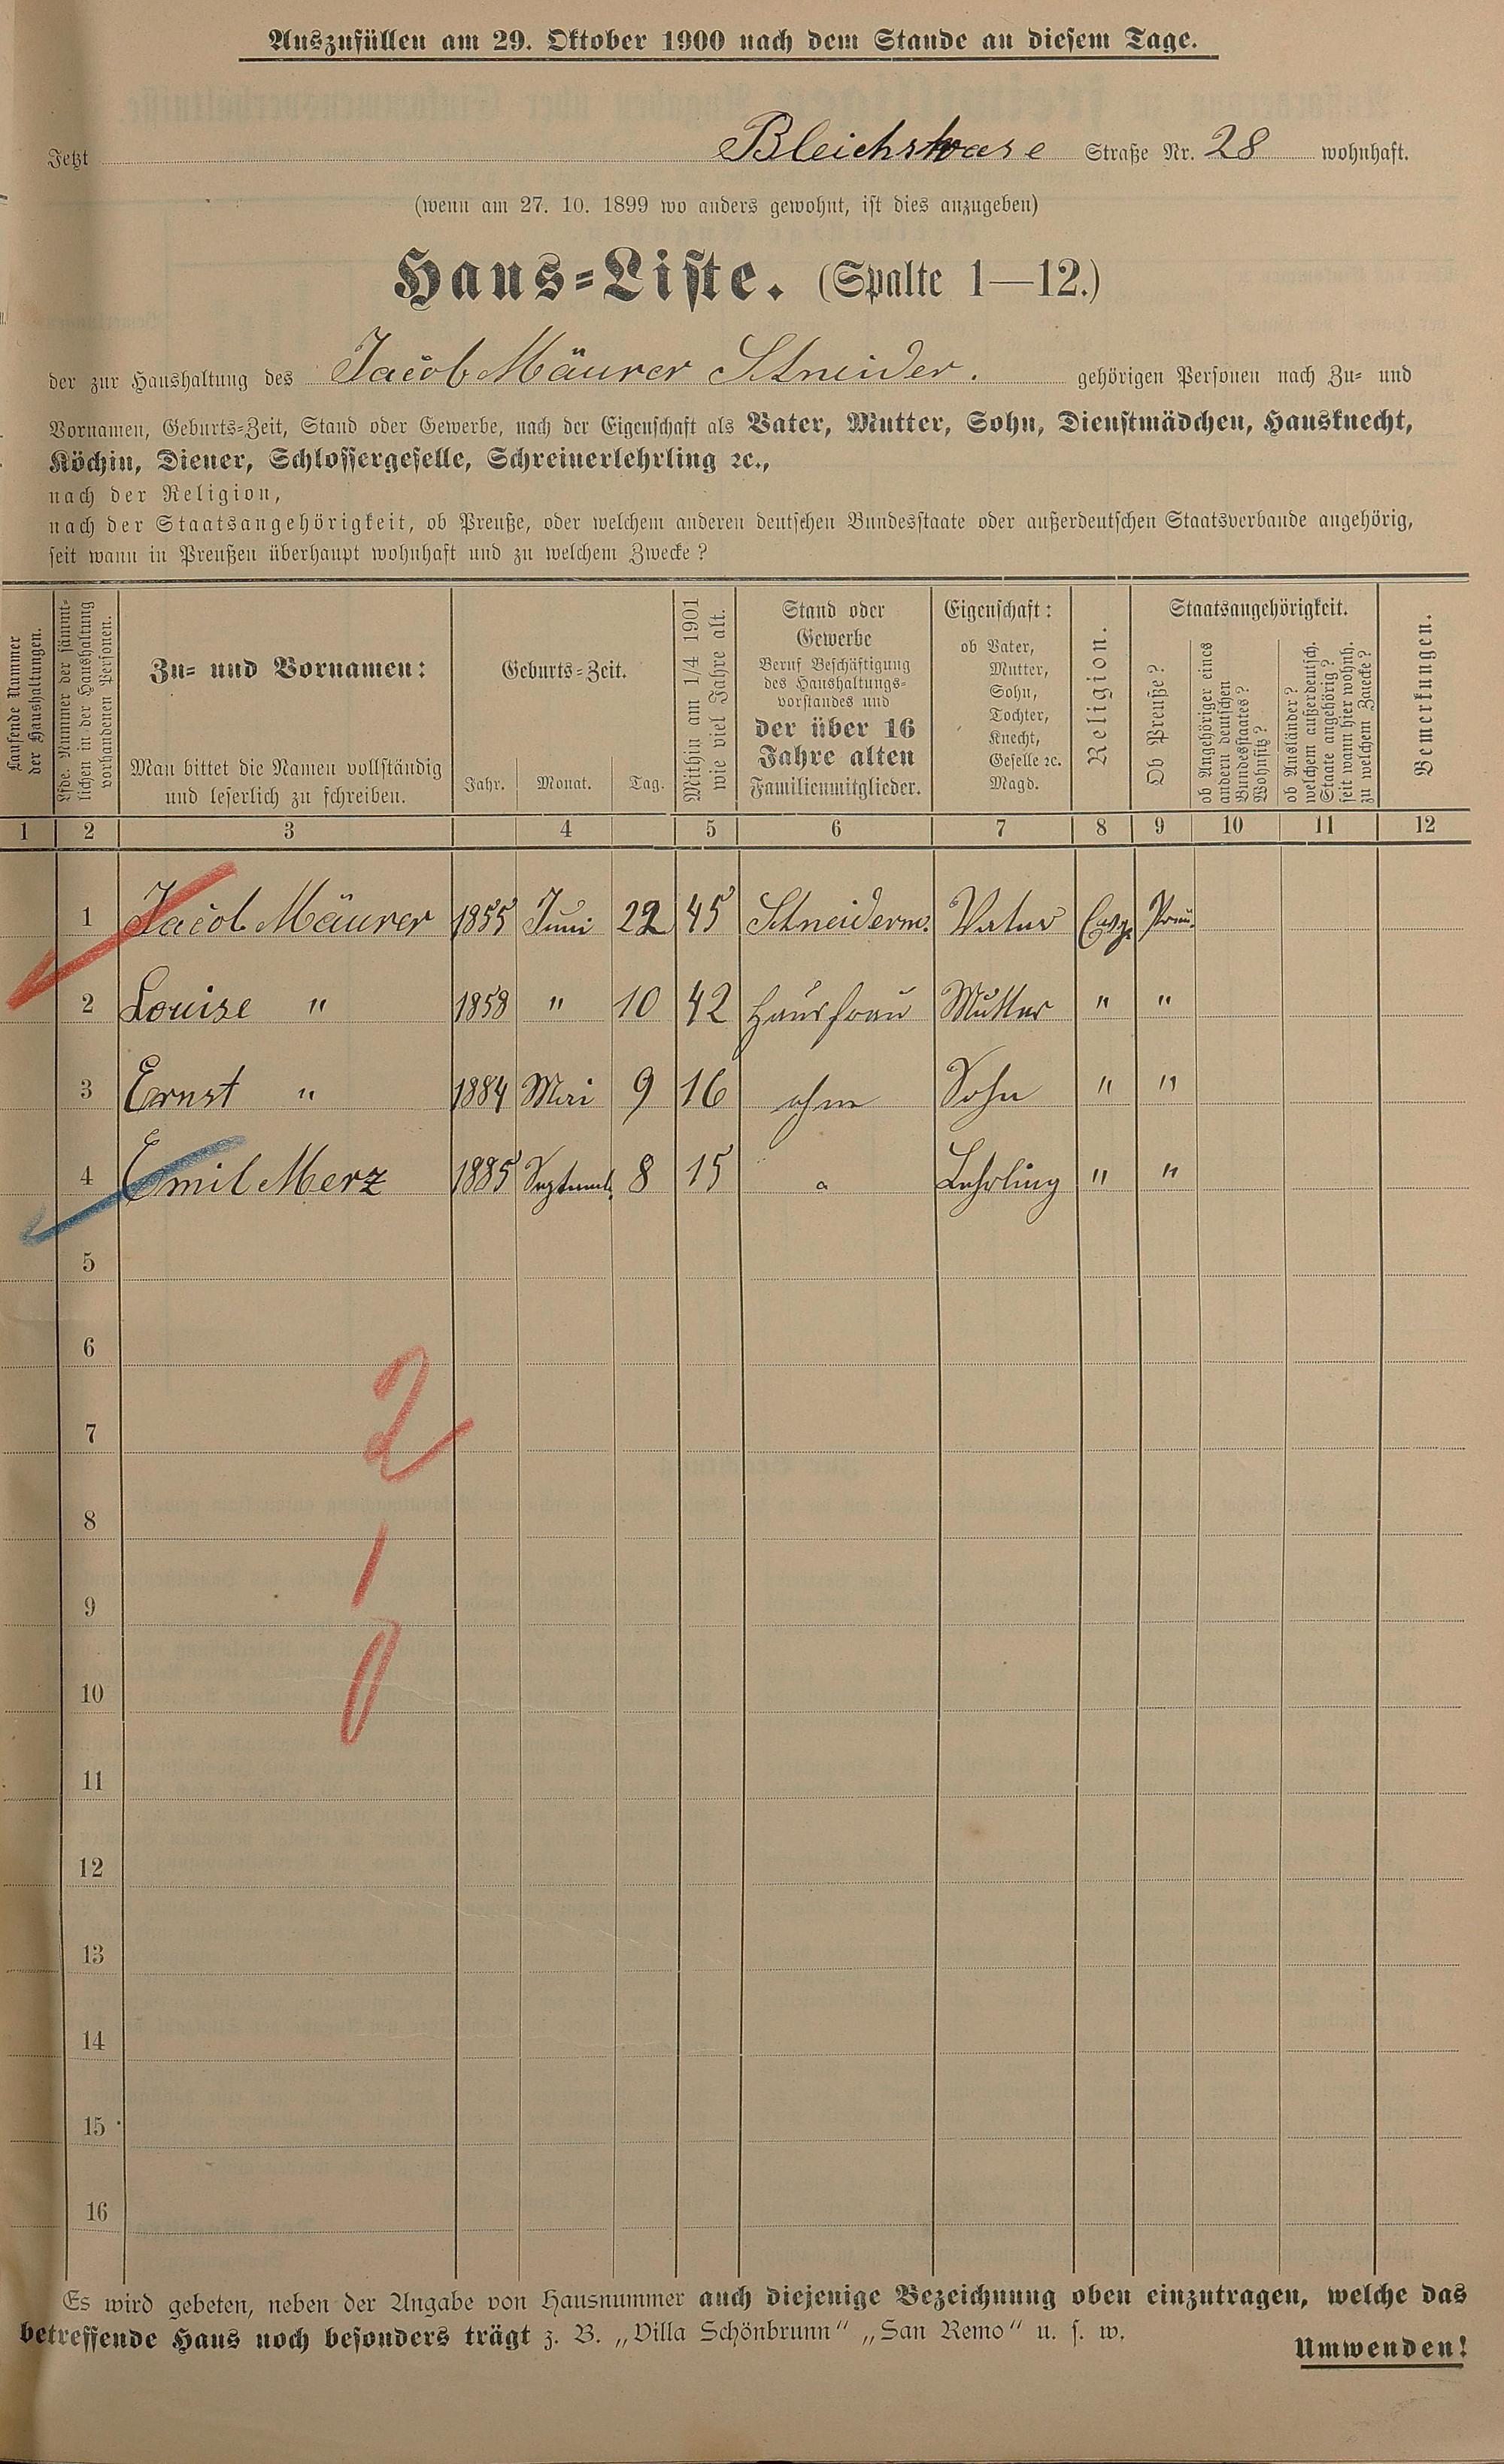 Auszufüllen am 29. Oktober 1900 nach dem Stande an diesem Tage.
Jetzt Bleichstrase Straße Nr. 28 wohnhaft.
(wenn am 27. 10. 1899 wo anders gewohnt, ist dies anzugeben)
Haus-Liste. (Spalte 1—12.)
der zur Haushaltung des Jacob Mäurer Schneider. gehörigen Personen nach Zu- und
Vornamen, Geburts-Zeit, Stand oder Gewerbe, nach der Eigenschaft als Vater, Mutter, Sohn, Dienstmädchen, Hausknecht,
Köchin, Diener, Schlossergeselle, Schreinerlehrling ꝛc.,
nach der Religion,
nach der Staatsangehörigkeit, ob Preuße, oder welchem anderen deutschen Bundesstaate oder außerdeutschen Staatsverbande angehörig,
seit wann in Preußen überhaupt wohnhaft und zu welchem Zwecke?
Laufende Nummer
der Haushaltungen.
Lfde. Nummer der sämmt-
lichen in der Haushaltung
vorhandenen Personen.
Zu- und Vornamen:
Man bittet die Namen vollständig
und leserlich zu schreiben.
Geburts-Zeit.
Jahr. Monat. Tag.
Mithin am 1/4 1901
wie viel Jahre alt.
Stand oder
Gewerbe
Beruf Beschäftigung
des Haushaltungs-
vorstandes und
der über 16
Jahre alten
Familienmitglieder.
Eigenschaft:
ob Vater,
Mutter,
Sohn,
Tochter,
Knecht,
Geselle ꝛc.
Magd.
Religion.
Staatsangehörigkeit.
Ob Preuße?
ob Angehöriger eines
andern deutschen
Bundesstaates?
Wohnsitz?
ob Ausländer?
welchem außerdeutsch.
Staate angehörig?
seit wann hier wohnh.
zu welchem Zwecke?
Bemerkungen.
1 2 3 4 5 6 7 8 9 10 11 12
1 Jacob Mäurer 1855 Juni 22 45 Schneiderm. Vater Evg. Preu.
2 Louise " 1858 " 10 42 Hausfrau Mutter " "
3 Ernst " 1884 Mai 9 16 ohne Sohn " "
4 Emil Merz 1885 Septemb. 8 15 Lehrling " "
5
6
2
7
8
1
9
0
10
11
12
13
14
15
16
Es wird gebeten, neben der Angabe von Hausnummer auch diejenige Bezeichnung oben einzutragen, welche das
betreffende Haus noch besonders trägt z. B. „Villa Schönbrunn“ „San Remo“ u. s. w.
Umwenden!